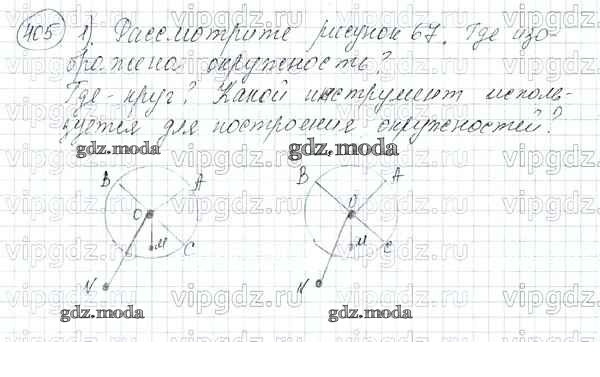 405 1) Рассмотрите рисунок 67. Где изо-
бражена окружность?
Где - круг? Какой инструмент исполь-
зуется для построения окружностей?
gdz.moda
gdz.moda
B A
O
M C
N
B A
O
M C
N
gdz.moda
gdz.moda
vipgdz.ru